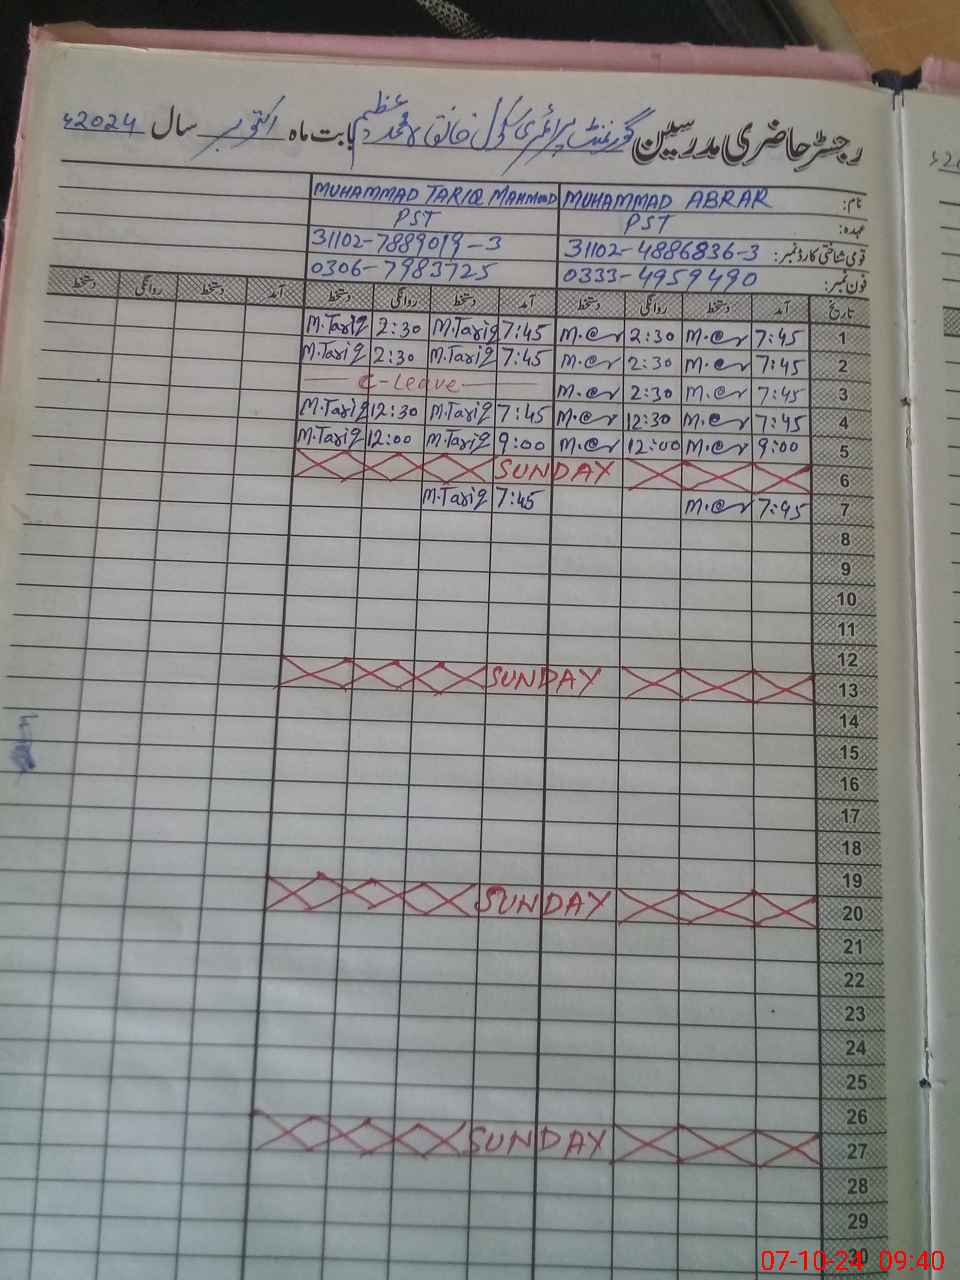 رجسٹر حاضری مدرسین گورنمنٹ پرائمری سکول خانقاہ محمد عظیم بابت ماہ اکتوبر سال 2024ء
نام: MUHAMMAD ABRAR MUHAMMAD TARIQ MAHMOOD
عہدہ: PST PST
قومی شناختی کارڈ نمبر: 31102-4886836-3 31102-7889019-3
فون نمبر: 0333-4959490 0306-7983725
تاریخ آمد دستخط روانگی دستخط آمد دستخط روانگی دستخط آمد دستخط روانگی دستخط
1 7:45 2:30 7:45 M.Tariq 2:30 M.Tariq
2 7:45 2:30 7:45 M.Tariq 2:30 M.Tariq
3 7:45 2:30 C-Leave
4 7:45 12:30 7:45 M.Tariq 12:30 M.Tariq
5 9:00 12:00 9:00 M.Tariq 12:00 M.Tariq
6 SUNDAY
7 7:45 7:45 M.Tariq
8
9
10
11
12
13 SUNDAY
14
15
16
17
18
19
20 SUNDAY
21
22
23
24
25
26
27 SUNDAY
28
29
30
07-10-24 09:40